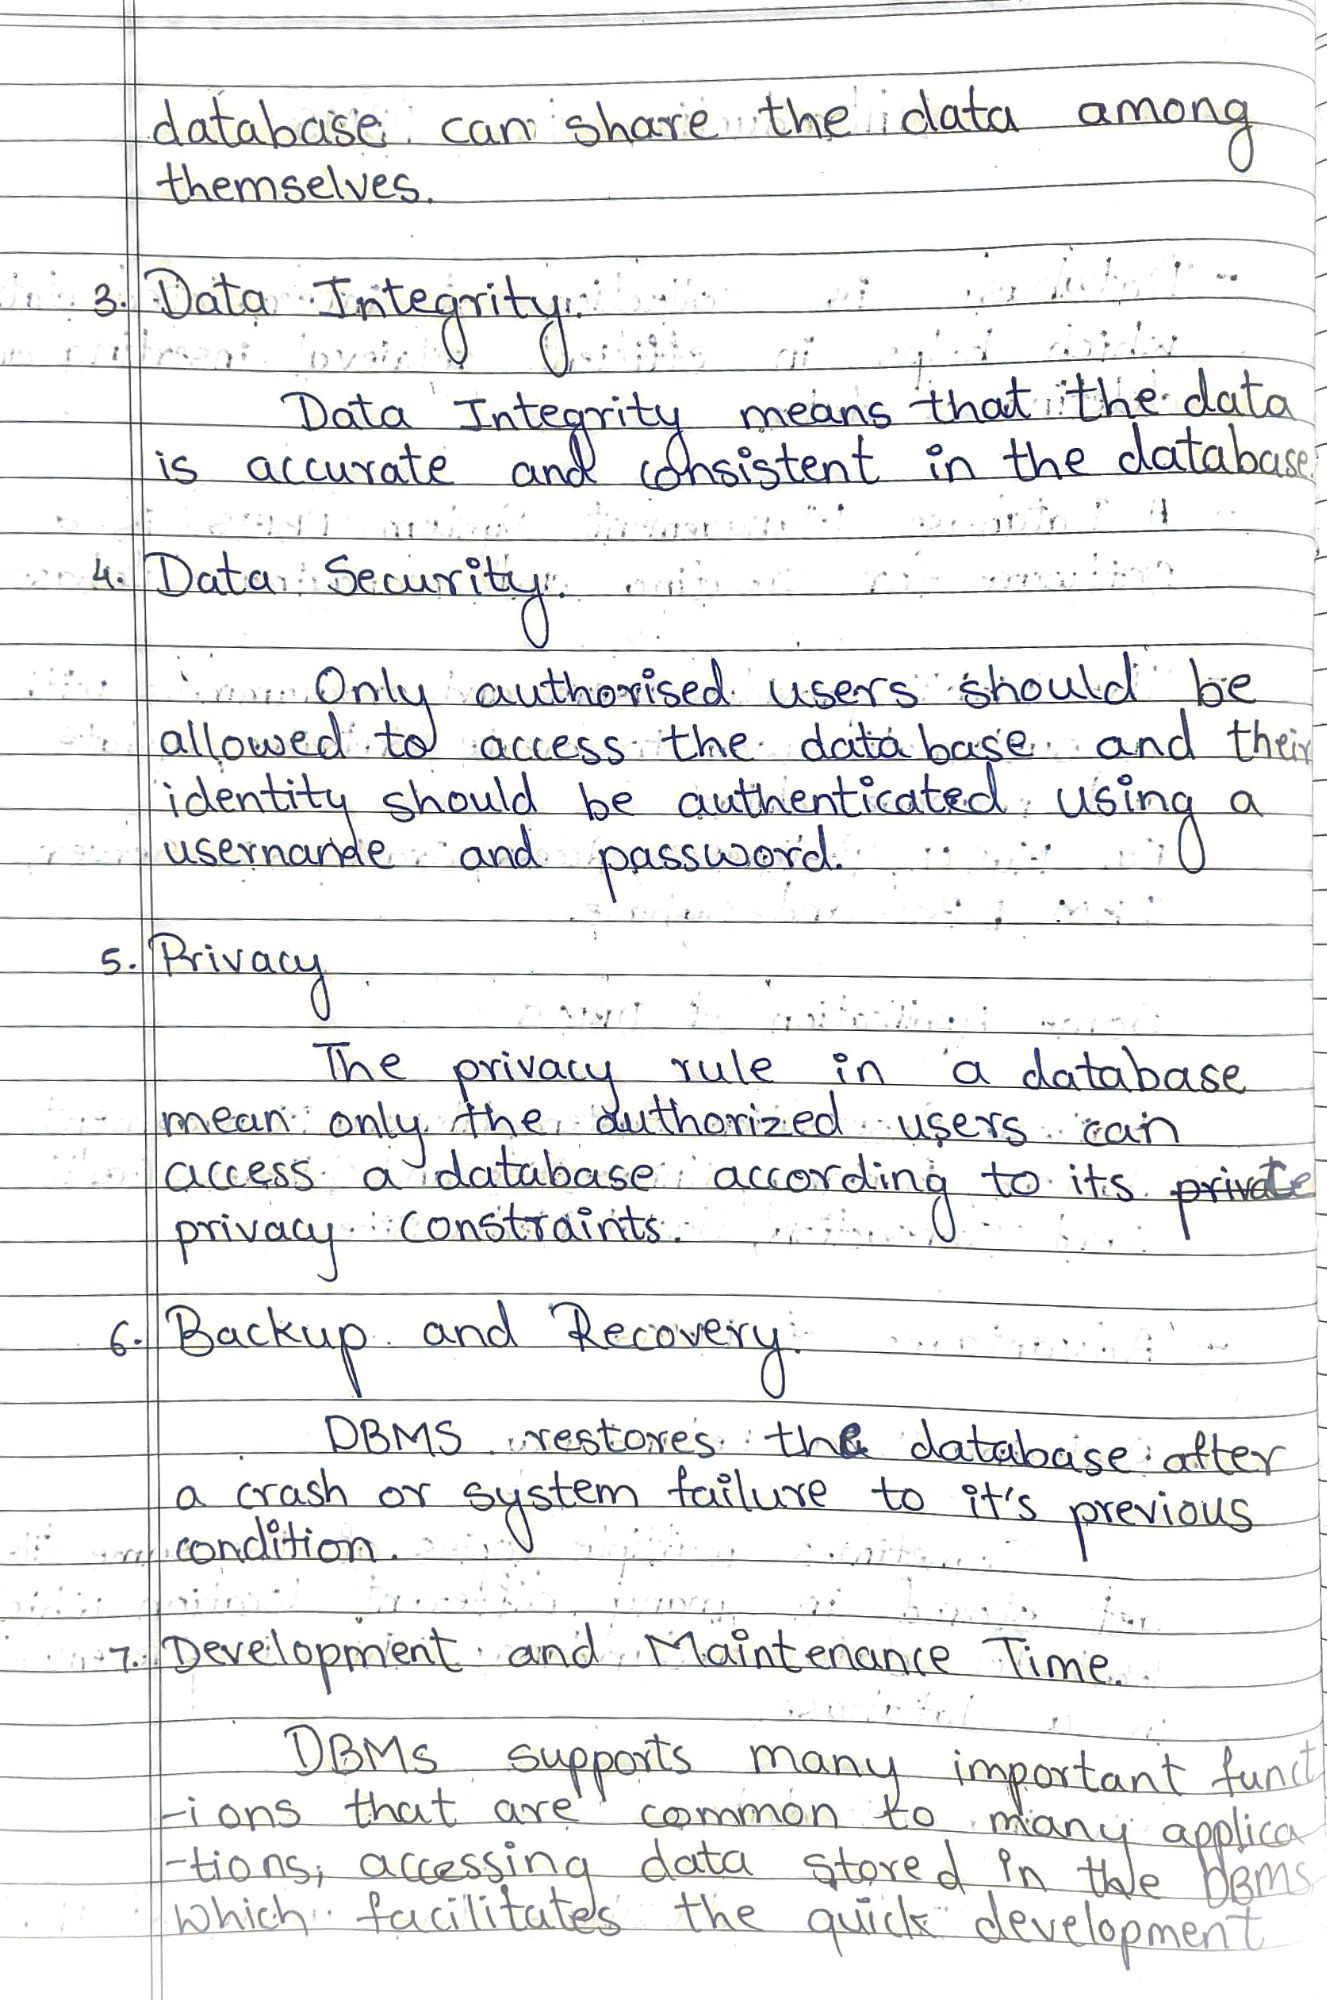 database can share the data among
themselves.
3. Data Integrity.
Data Integrity means that the data
is accurate and consistent in the database.
4. Data Security.
Only authorised users should be
allowed to access the database and their
identity should be authenticated using a
username and password.
5. Privacy
The privacy rule in a database
mean only the authorized users can
access a database according to its private
privacy constraints.
6. Backup and Recovery.
DBMS restores the database after
a crash or system failure to it's previous
condition.
7. Development and Maintenance Time.
DBMS supports many important funct
-ions that are common to many applica
-tions, accessing data stored in the DBMS
which facilitates the quick development